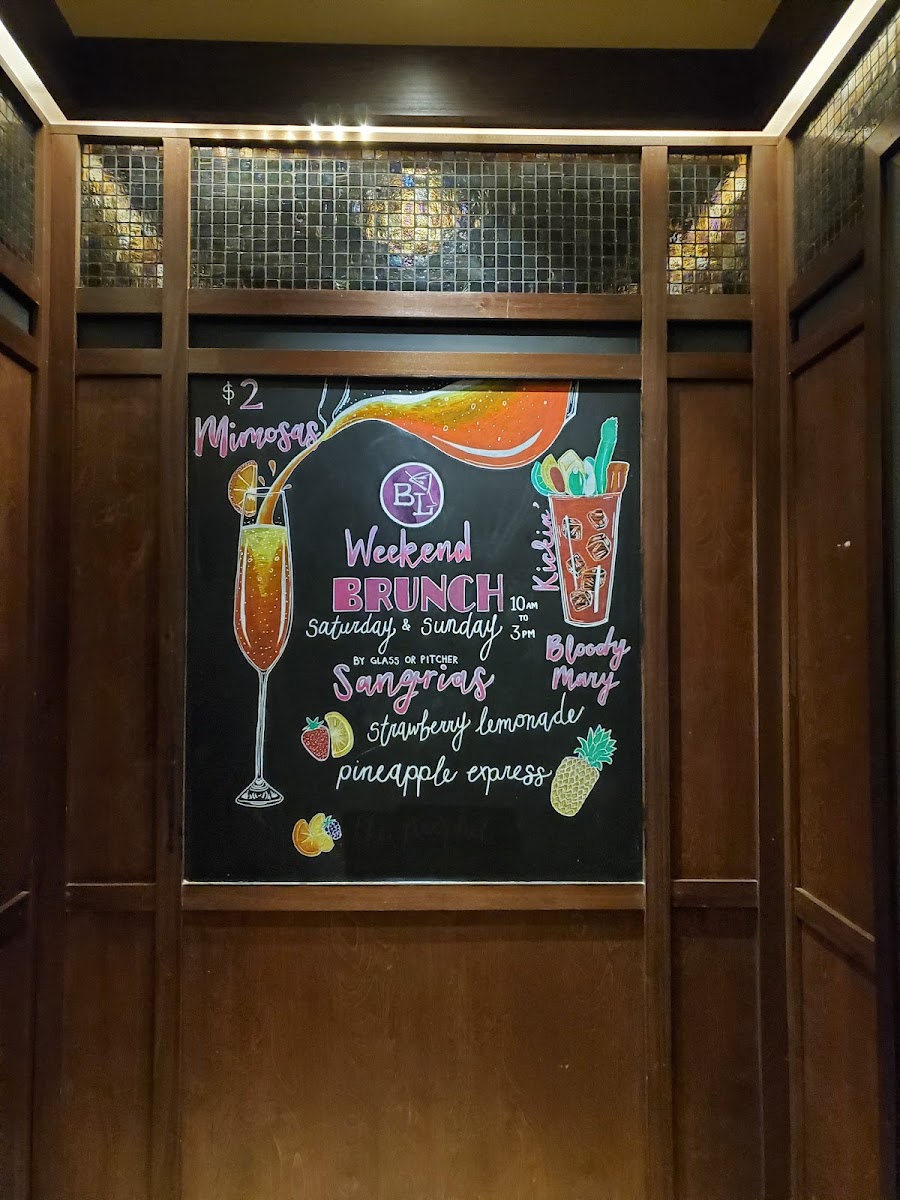 $2
Mimosas
BL
Weekend
BRUNCH
Saturday & Sunday
10AM
TO
3PM
Kickin'
Bloody
Mary
BY GLASS OR PITCHER
Sangrias
strawberry lemonade
pineapple express